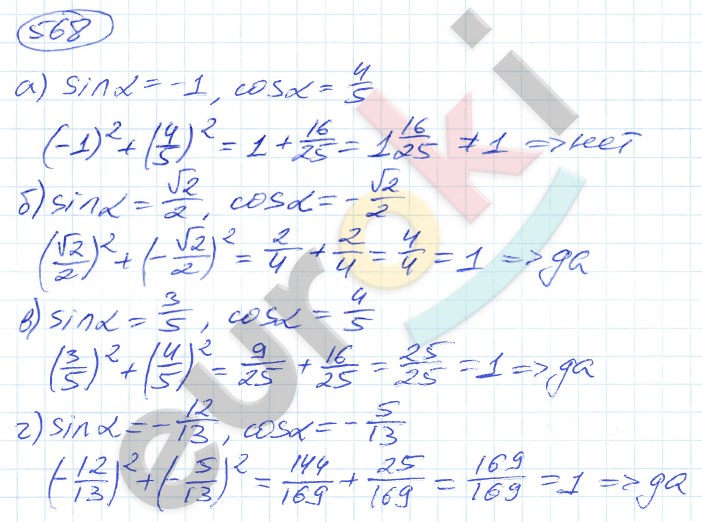 568
а) sinα = -1, cosα = 4/5
(-1)² + (4/5)² = 1 + 16/25 = 1 16/25 ≠ 1 => нет
б) sinα = √2/2, cosα = -√2/2
(√2/2)² + (-√2/2)² = 2/4 + 2/4 = 4/4 = 1 => да
в) sinα = 3/5, cosα = 4/5
(3/5)² + (4/5)² = 9/25 + 16/25 = 25/25 = 1 => да
г) sinα = -12/13, cosα = -5/13
(-12/13)² + (-5/13)² = 144/169 + 25/169 = 169/169 = 1 => да
euroki